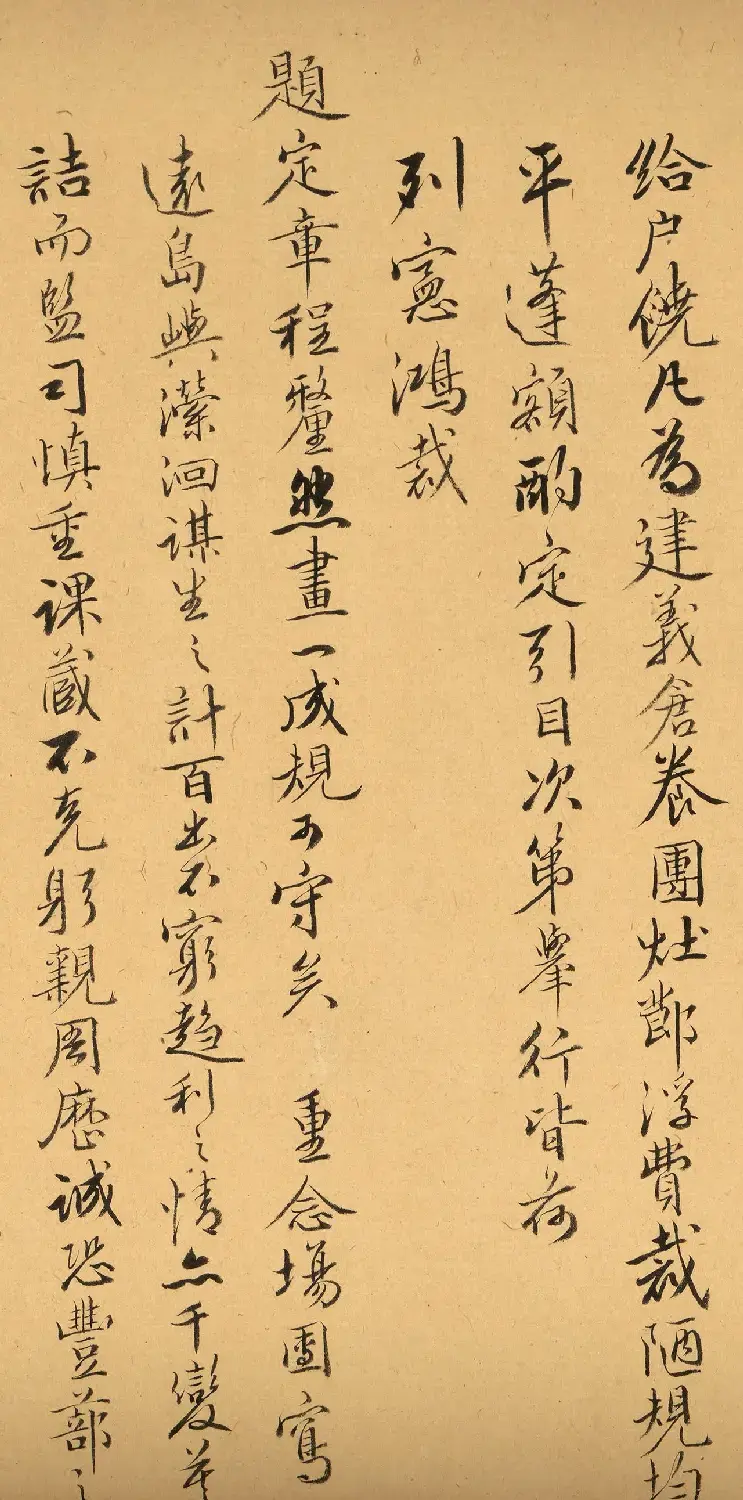 给户饒凡為建義倉養團灶鄭浮費裁陋規均
平蓬額酌定引目次第舉行皆荷
列憲鴻裁
題定章程釐然畫一成規可守矣 重念場團寫
遠島嶼瀠洄謀生之計百出不窮趨利之情亦千變莫
詰而監司慎重課藏不克躬親周歷誠恐豐蔀之